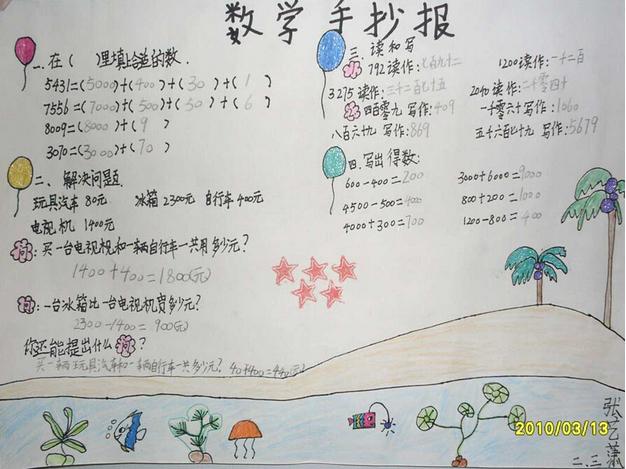 数学手抄报
一. 在(　)里填上合适的数.
5431=(5000)+(400)+(30)+(1)
7556=(7000)+(500)+(50)+(6)
8009=(8000)+(9)
3070=(3000)+(70)
二、解决问题.
玩具汽车 80元 冰箱 2300元 自行车 400元
电视机 1400元
问:买一台电视机和一辆自行车一共用多少元?
1400+400=1800(元)
问:一台冰箱比一台电视机贵多少元?
2300-1400=900(元)
你还能提出什么问?
买一辆玩具汽车和一辆自行车一共多少元?
三. 读和写
792读作:七百九十二 1200读作:一千二百
3275读作:三千二百七十五 2040读作:二千零四十
四百零九 写作:409 一千零六十 写作:1060
八百六十九 写作:869 五千六百七十九 写作:5679
四. 写出得数:
600-400=200 3000+6000=9000
4500-500=4000 800+200=1000
4000+300= 1200-800=400
2010/03/13
二.三